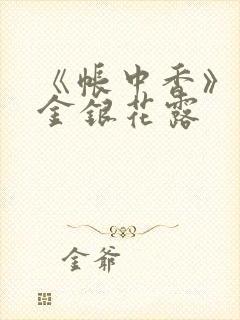 《帐中香》
金银花露
金爷